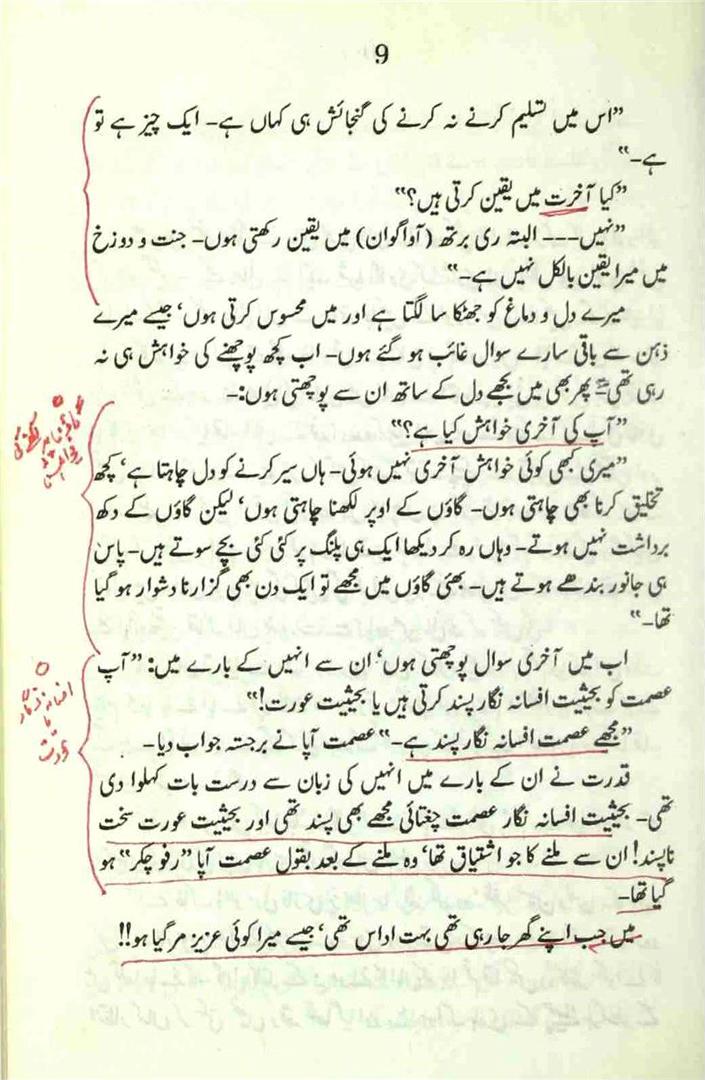 9
”اس میں تسلیم کرنے نہ کرنے کی گنجائش ہی کہاں ہے۔ ایک چیز ہے تو
ہے۔“
”کیا آخرت میں یقین کرتی ہیں؟“
”نہیں۔۔۔ البتہ ری برتھ (آواگوان) میں یقین رکھتی ہوں۔ جنت و دوزخ
میں میرا یقین بالکل نہیں ہے۔“
میرے دل و دماغ کو جھٹکا سا لگتا ہے اور میں محسوس کرتی ہوں‘ جیسے میرے
ذہن سے باقی سارے سوال غائب ہو گئے ہوں۔ اب کچھ پوچھنے کی خواہش ہی نہ
رہی تھی۔ پھر بھی میں بجھے دل کے ساتھ ان سے پوچھتی ہوں:۔
”آپ کی آخری خواہش کیا ہے؟“
”میری کبھی کوئی خواہش آخری نہیں ہوئی۔ ہاں سیر کرنے کو دل چاہتا ہے‘ کچھ
تخلیق کرنا بھی چاہتی ہوں۔ گاؤں کے اوپر لکھنا چاہتی ہوں‘ لیکن گاؤں کے دکھ
برداشت نہیں ہوتے۔ وہاں رہ کر دیکھا ایک ہی پلنگ پر کئی کئی بچے سوتے ہیں۔ پاس
ہی جانور بندھے ہوتے ہیں۔ بھئی گاؤں میں مجھے تو ایک دن بھی گزارنا دشوار ہو گیا
تھا۔“
اب میں آخری سوال پوچھتی ہوں‘ ان سے انہیں کے بارے میں: ”آپ
عصمت کو بحیثیت افسانہ نگار پسند کرتی ہیں یا بحیثیت عورت!“
”مجھے عصمت افسانہ نگار پسند ہے۔“ عصمت آپا نے برجستہ جواب دیا۔
قدرت نے ان کے بارے میں انہیں کی زبان سے درست بات کہلوا دی
تھی۔ بحیثیت افسانہ نگار عصمت چغتائی مجھے بھی پسند تھی اور بحیثیت عورت سخت
ناپسند! ان سے ملنے کا جو اشتیاق تھا‘ وہ ملنے کے بعد بقول عصمت آپا ”رفو چکر“ ہو
گیا تھا۔
میں جب اپنے گھر جا رہی تھی بہت اداس تھی‘ جیسے میرا کوئی عزیز مر گیا ہو!!
افسانہ نگار
یا
عورت